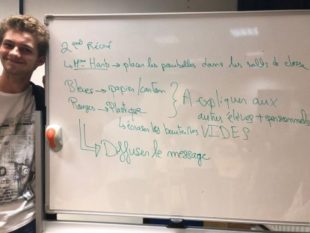 2ème Récré
↳ Mme Hants → placer les poubelles dans les salles de classe
Bleues → papier/carton
Rouges → Plastique
↳ écraser les bouteilles VIDES
} A expliquer aux
autres élèves + personnels
↳ Diffuser le message